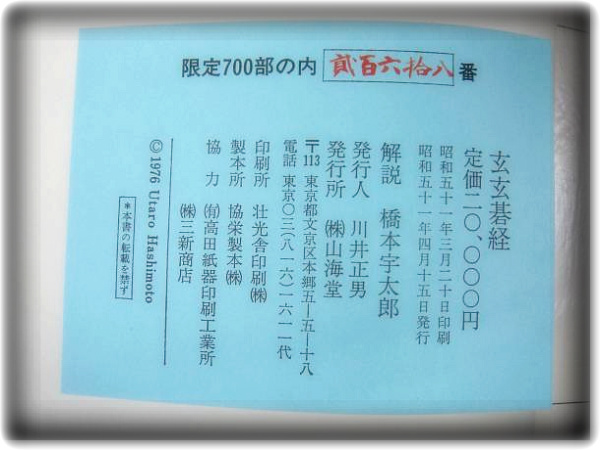 限定700部の内 貳百六拾八 番
玄玄碁経
定価二〇、〇〇〇円
昭和五十一年三月二十日印刷
昭和五十一年四月十五日発行
解説 橋本宇太郎
発行人 川井正男
発行所 ㈱山海堂
〒113 東京都文京区本郷五―五―十八
電話 東京〇三(八一六)一六一一代
印刷所 壮光舎印刷㈱
製本所 協栄製本㈱
協力 ㈲高田紙器印刷工業所
㈱三新商店
Ⓒ1976 Utaro Hashimoto
*本書の転載を禁ず